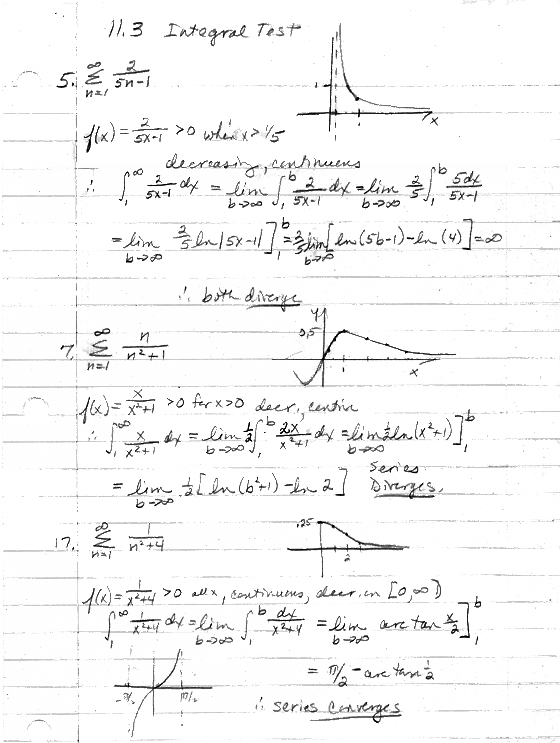 11.3 Integral Test
5. ∞ Σ n=1 2/(5n-1)
1
x
f(x) = 2/(5x-1) > 0 when x > 1/5
decreasing, continuous
∴ ∫₁^∞ 2/(5x-1) dx = lim b→∞ ∫₁^b 2/(5x-1) dx = lim b→∞ 2/5 ∫₁^b 5dx/(5x-1)
= lim b→∞ 2/5 ln|5x-1| ]₁^b = 2/5 lim b→∞ [ln(5b-1) - ln(4)] = ∞
∴ both diverge
y
0,5
7. ∞ Σ n=1 n/(n²+1)
x
f(x) = x/(x²+1) > 0 for x>0 decr., contin
∴ ∫₁^∞ x/(x²+1) dx = lim b→∞ 1/2 ∫₁^b 2x/(x²+1) dx = lim b→∞ 1/2 ln(x²+1) ]₁^b
= lim b→∞ 1/2 [ln(b²+1) - ln 2] Series
Diverges.
17. ∞ Σ n=1 1/(n²+4)
.25
2
f(x) = 1/(x²+4) > 0 all x, continuous, decr. on [0,∞)
∫₁^∞ 1/(x²+4) dx = lim b→∞ ∫₁^b dx/(x²+4) = lim b→∞ arc tan x/2 ]₁^b
= π/2 - arc tan 1/2
-π/2 π/2
∴ series converges